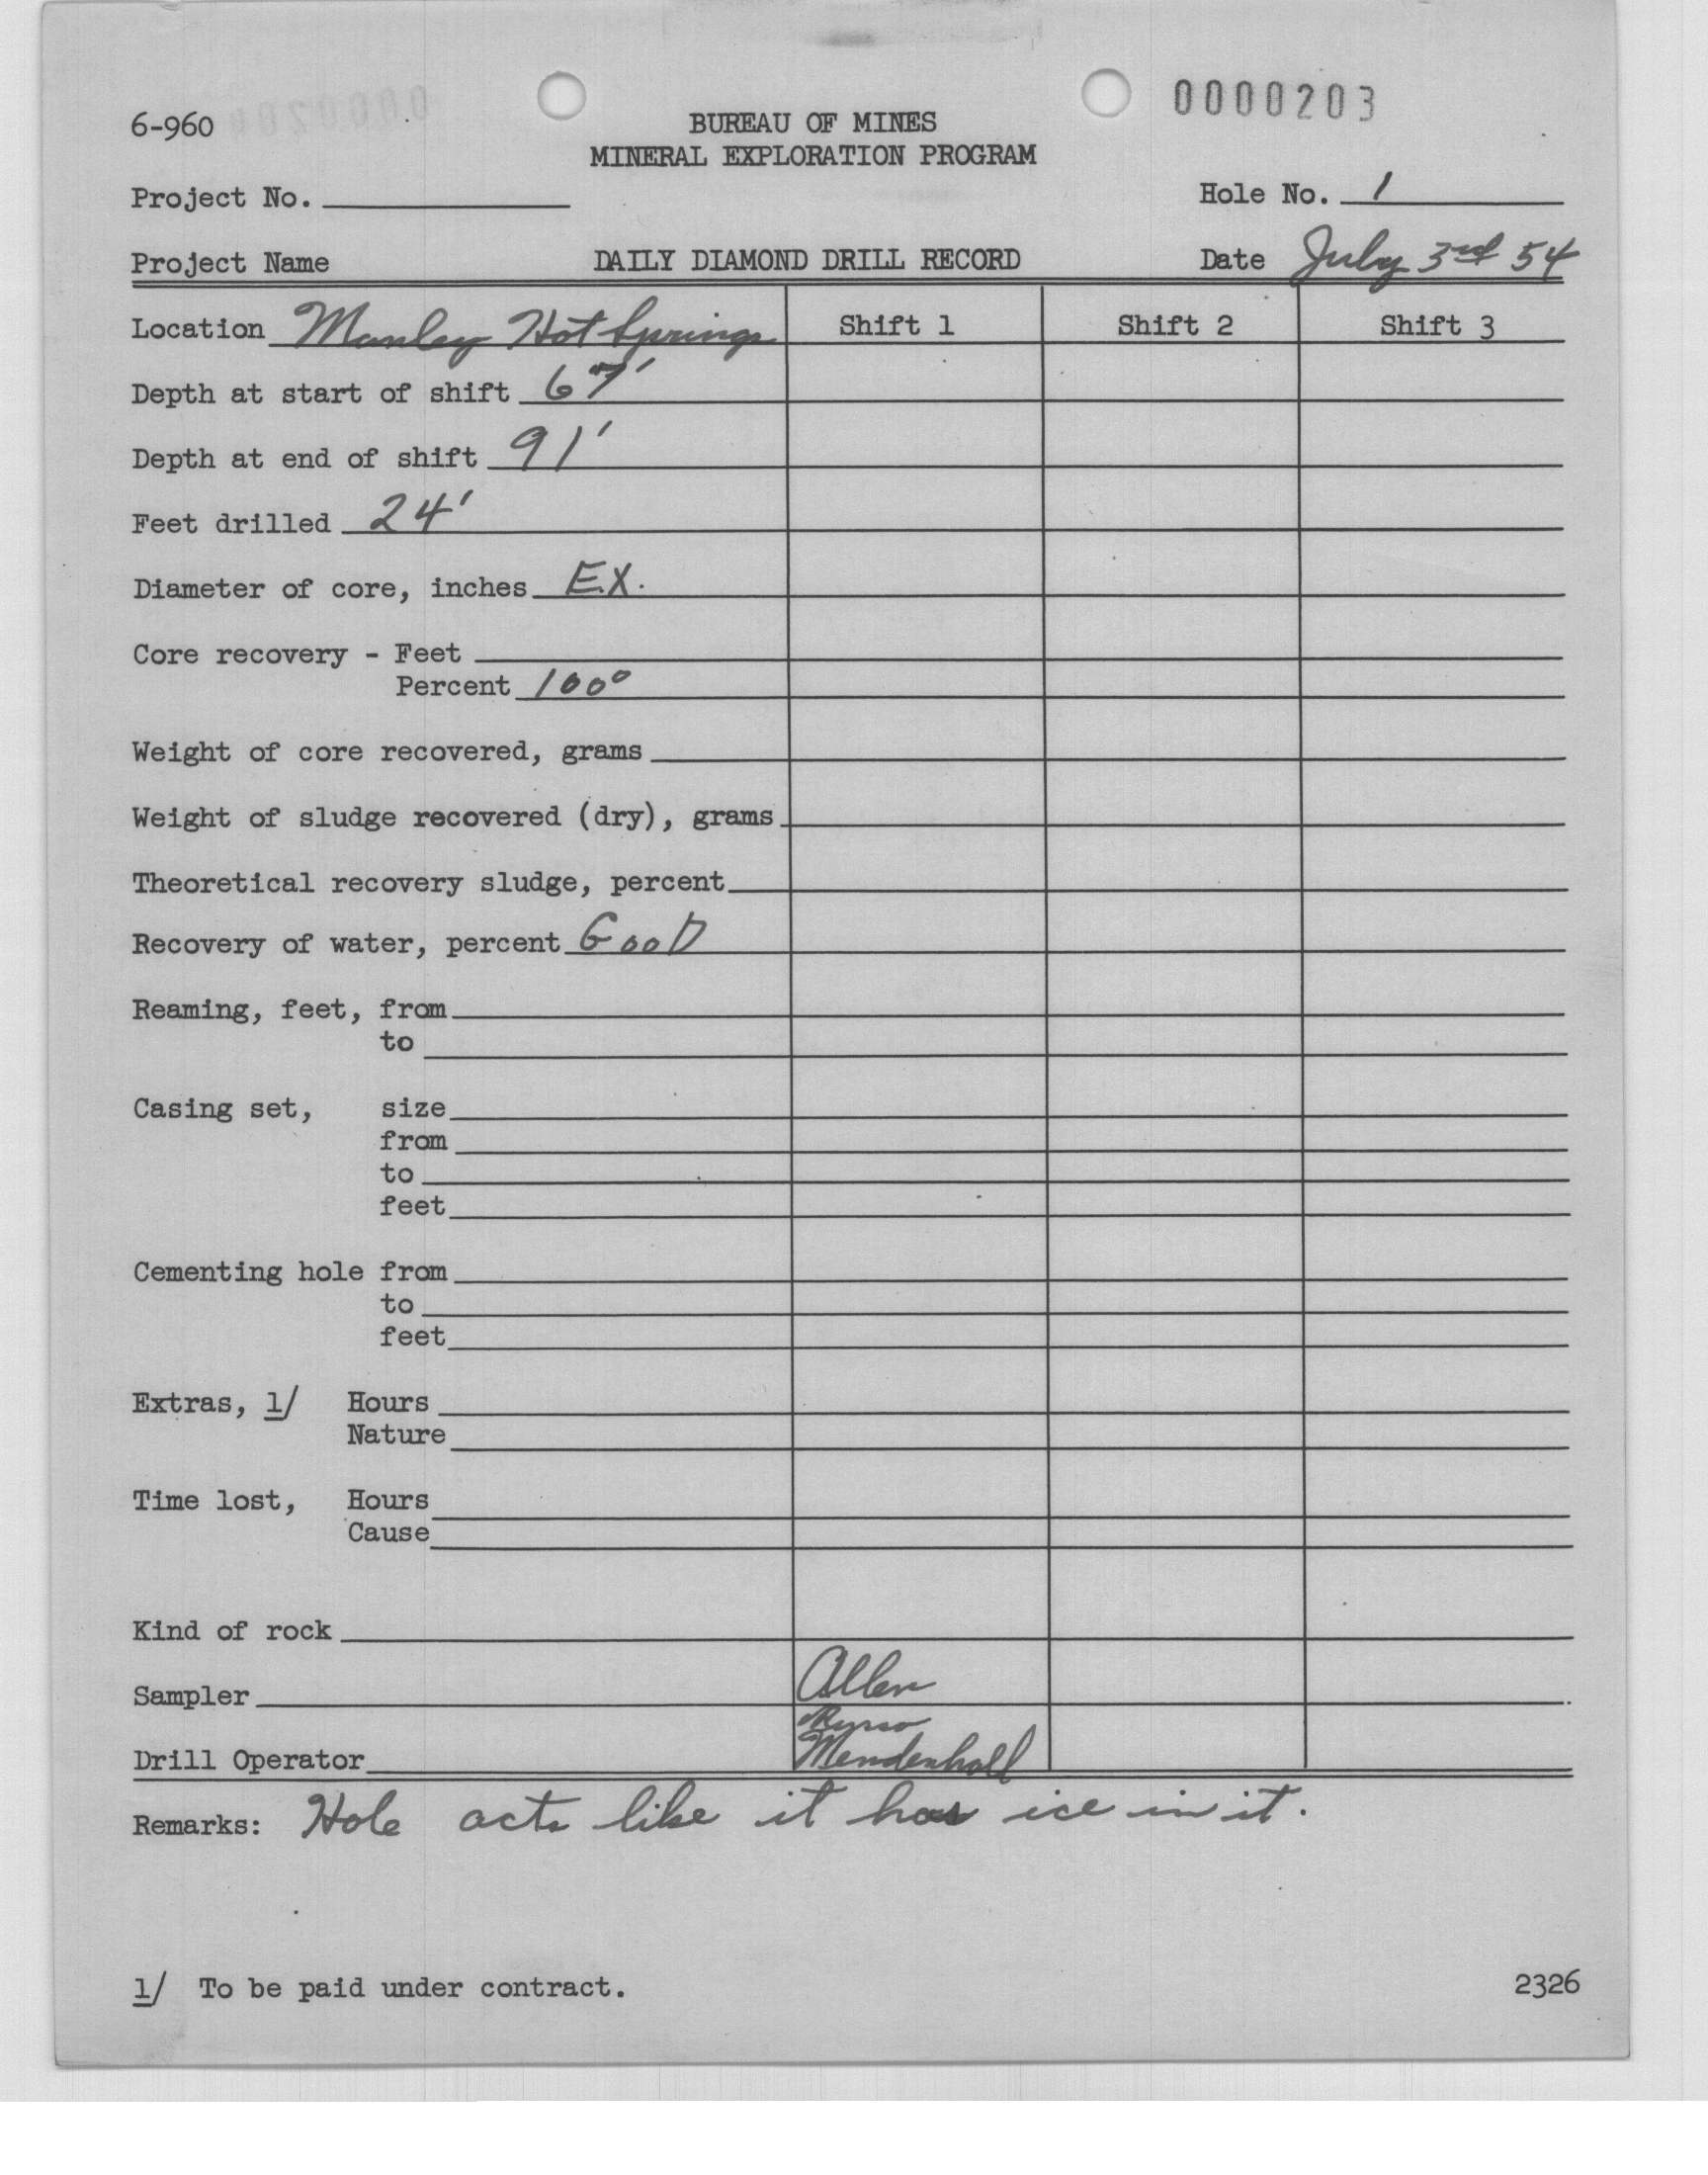 0000203
6-960
BUREAU OF MINES
MINERAL EXPLORATION PROGRAM
Project No.
Hole No. 1
Project Name DAILY DIAMOND DRILL RECORD Date July 3rd 54
Location Manley Hot Springs Shift 1 Shift 2 Shift 3
Depth at start of shift 67'
Depth at end of shift 91'
Feet drilled 24'
Diameter of core, inches EX.
Core recovery - Feet
Percent 100°
Weight of core recovered, grams
Weight of sludge recovered (dry), grams
Theoretical recovery sludge, percent
Recovery of water, percent GooD
Reaming, feet, from
to
Casing set, size
from
to
feet
Cementing hole from
to
feet
Extras, 1/ Hours
Nature
Time lost, Hours
Cause
Kind of rock
Sampler Allen
Drill Operator Mendenhall
Remarks: Hole acts like it has ice in it.
1/ To be paid under contract.
2326